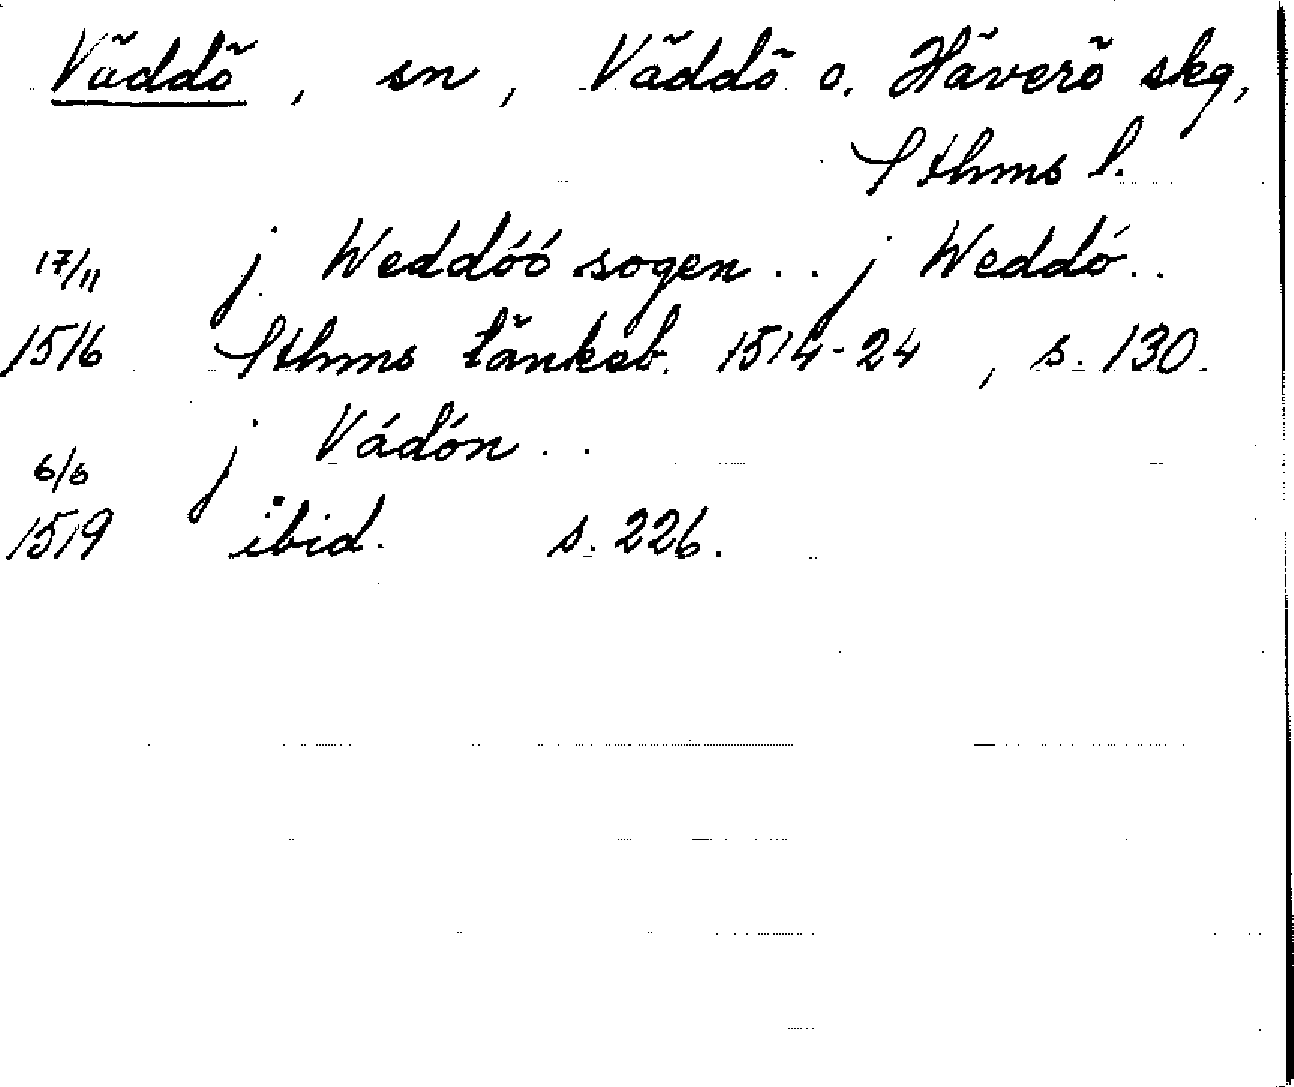 Väddö, sn, Väddö o. Häverö skg,
Sthms l.
17/11 j Weddóó sogen.. j Weddó..
1516 Sthms tänkeb. 1514-24, s. 130.
6/6 j Vádón..
1519 ibid. s. 226.